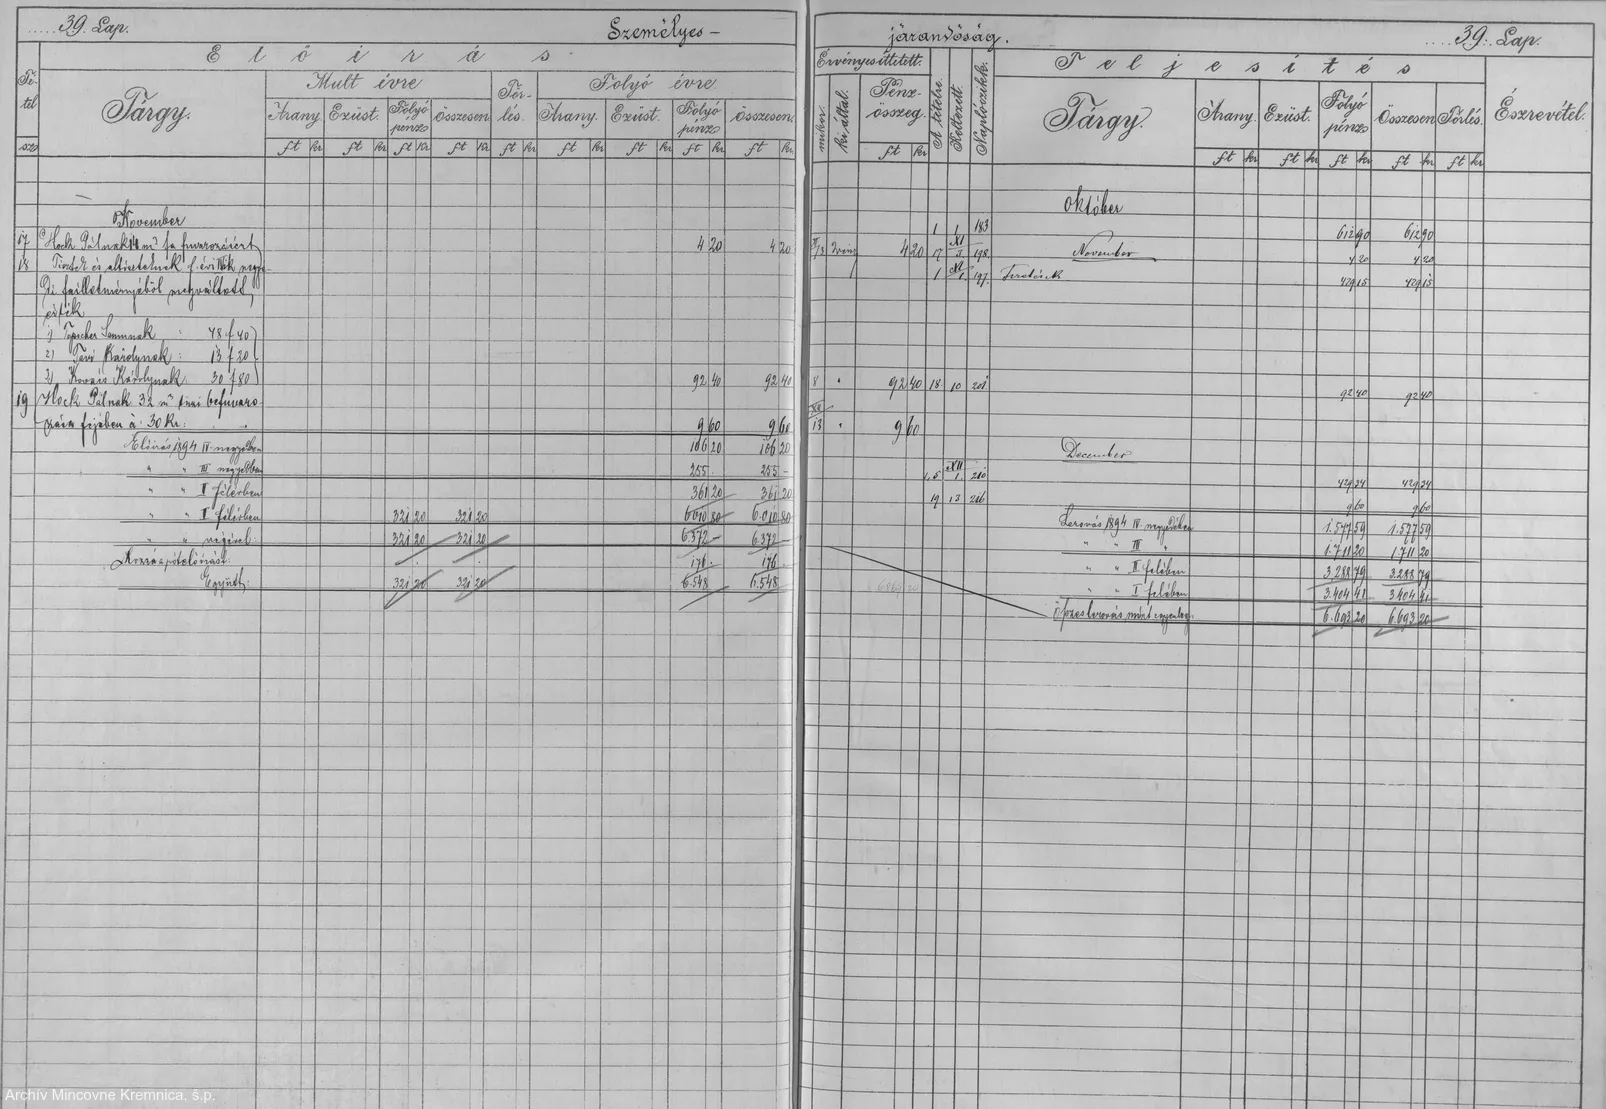 39. Lap.
Személyes –
Előirás
Tétel sz
Tárgy.
Mult évre
Törlés.
Folyó évre
Arany. Ezüst. Folyó pénz összesen
Arany. Ezüst. Folyó pénz összesen.
ft kr ft kr ft kr ft kr ft kr ft kr ft kr ft kr ft kr
November
17 Hock Pálnak 14 m³ fa fuvarozásért 4 20 4 20
18 Tisztek és altiszteknek f. évi
1) Samunak 48 f 40
2) Károlynak 13 f 20
3) Kovács Károlynak 30 f 80 92 40 92 40
19 Hock Pálnak 32 m³
fejében à 30 Kr: 9 60 9 60
Előirás 1894 IV. negyedben 106 20 106 20
" " III negyedben 255 - 255 -
" " II félévben 361 20 361 20
" " I félévben 321 20 321 20 6.010 80 6.010 80
" " 321 20 321 20 6.372 - 6.372 -
176 - 176 -
Együtt: 321 20 321 20 6.548 6.548
járandóság.
39. Lap.
Érvényesíttetett.
mikor. ki által. Pénzösszeg.
A tételre. Keltezett. Naplóczikk.
Teljesités
Tárgy.
Arany. Ezüst. Folyó pénz Összesen Törlés.
Észrevétel.
ft kr ft kr ft kr ft kr ft kr ft kr
Október
1 1 183 612 90 612 90
4 20 17 198 November 4 20 4 20
1 197. 429 15 429 15
8 " 92 40 18 10 201 92 40 92 40
XII
13 " 9 60
December
XII
1. 210 429 34 429 34
19 13 216 9 60 9 60
1894 IV negyedében 1.577 59 1.577 59
" " III " 1.711 20 1.711 20
" " II felében 3.288 79 3.288 79
" " I felében 3.404 41 3.404 41
mint egyenleg. 6.693 20 6.693 20
Archív Mincovne Kremnica, š.p.